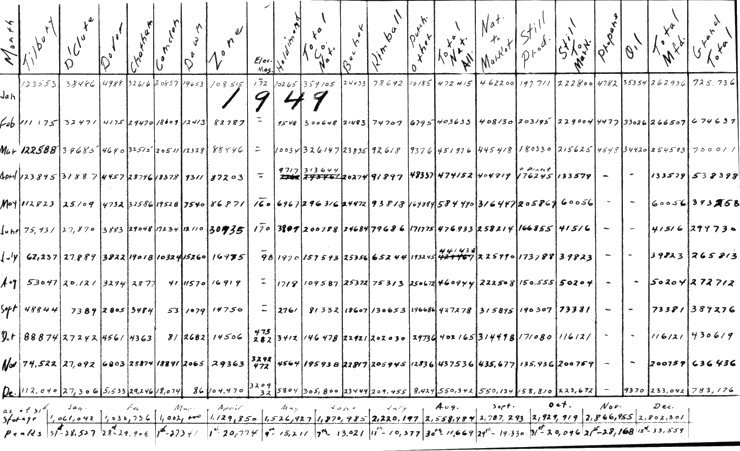 Month Tilbury D'Clute Dover Chatham Camcron Dawn Zone Elec. Mag. Howland Total Gas Nat. Becher Kimball Other Total Nat. All. Nat. to Market Still Prod. Still Mark. Propane Oil Total Mkd. Grand Total
Jan 123553 38486 4988 32616 20857 19653 108515 172 10265 359105 24433 78692 10185 472415 462200 197711 222800 4782 35354 262936 725,736
1949
Feb 111175 32471 4175 29470 18609 12413 82787 = 9548 300648 21483 74707 6795 403633 408130 203195 229004 4477 33026 266507 674637
Mar 122588 39685 4640 32525 20511 12329 88446 = 10034 326147 23835 92618 9376 451976 445418 180330 215625 4548 34420 254593 700011
April 123895 31887 4457 28796 18378 9311 87203 = 9717 313644 20274 91897 48337 474152 404819 176245 133579 - - 133579 538398
May 112823 25,109 4732 32586 19528 7540 86871 160 6967 296316 24472 93818 169884 584480 316447 205867 60056 - - 60056
June 75,931 27,870 3883 29048 17234 12110 30935 170 200788 24684 79686 171775 476933 258214 166855 41516 - - 41516 299730
July 62,237 27,889 3822 19018 10324 15260 16475 90 1970 157593 25356 65244 193245 441438 225990 173788 39823 - - 39823 265813
Aug 53047 20,121 3294 2877 41 11570 16919 - 1718 109587 25372 75313 250672 460944 222508 150,555 50204 - - 50204 272712
Sept 48844 7389 2805 3484 53 1079 14750 = 2761 81332 18607 130653 196686 427278 315895 190307 73381 - - 73381 389276
Oct 88874 27242 4561 4363 81 2682 14506 475 282 3412 146478 22921 202030 29736 402165 314498 171080 116121 - - 116121 430619
Nov 74,522 27,092 6803 25874 18891 2065 29363 3292 472 4564 195938 22817 205945 12836 437536 435,677 135,436 200759 - - 200759 636436
De. 112,040 27,306 5,533 29,246 18,074 86 104,470 3209 32 5804 305,800 23444 209,455 8,429 550,342 550,134 158,810 223,672 - 9370 233,042 783,176
Jan. Fe Mar April May June July Aug. Sept. Oct. Nov. Dec.
Storage 1,061,042 1,030,736 1,129,850 1,526,927 1,870,985 2,220,197 2,558,484 2,787,293 2,929,919 2,866,955 2,802,301
Peaks 31st-28,527 28-29,908 1st-27341 1st-20,774 9th-15,211 7th-13,021 11th-10,377 30th-11,669 29th-19,330 31st-20,096 21st-28,168 15th-33,559